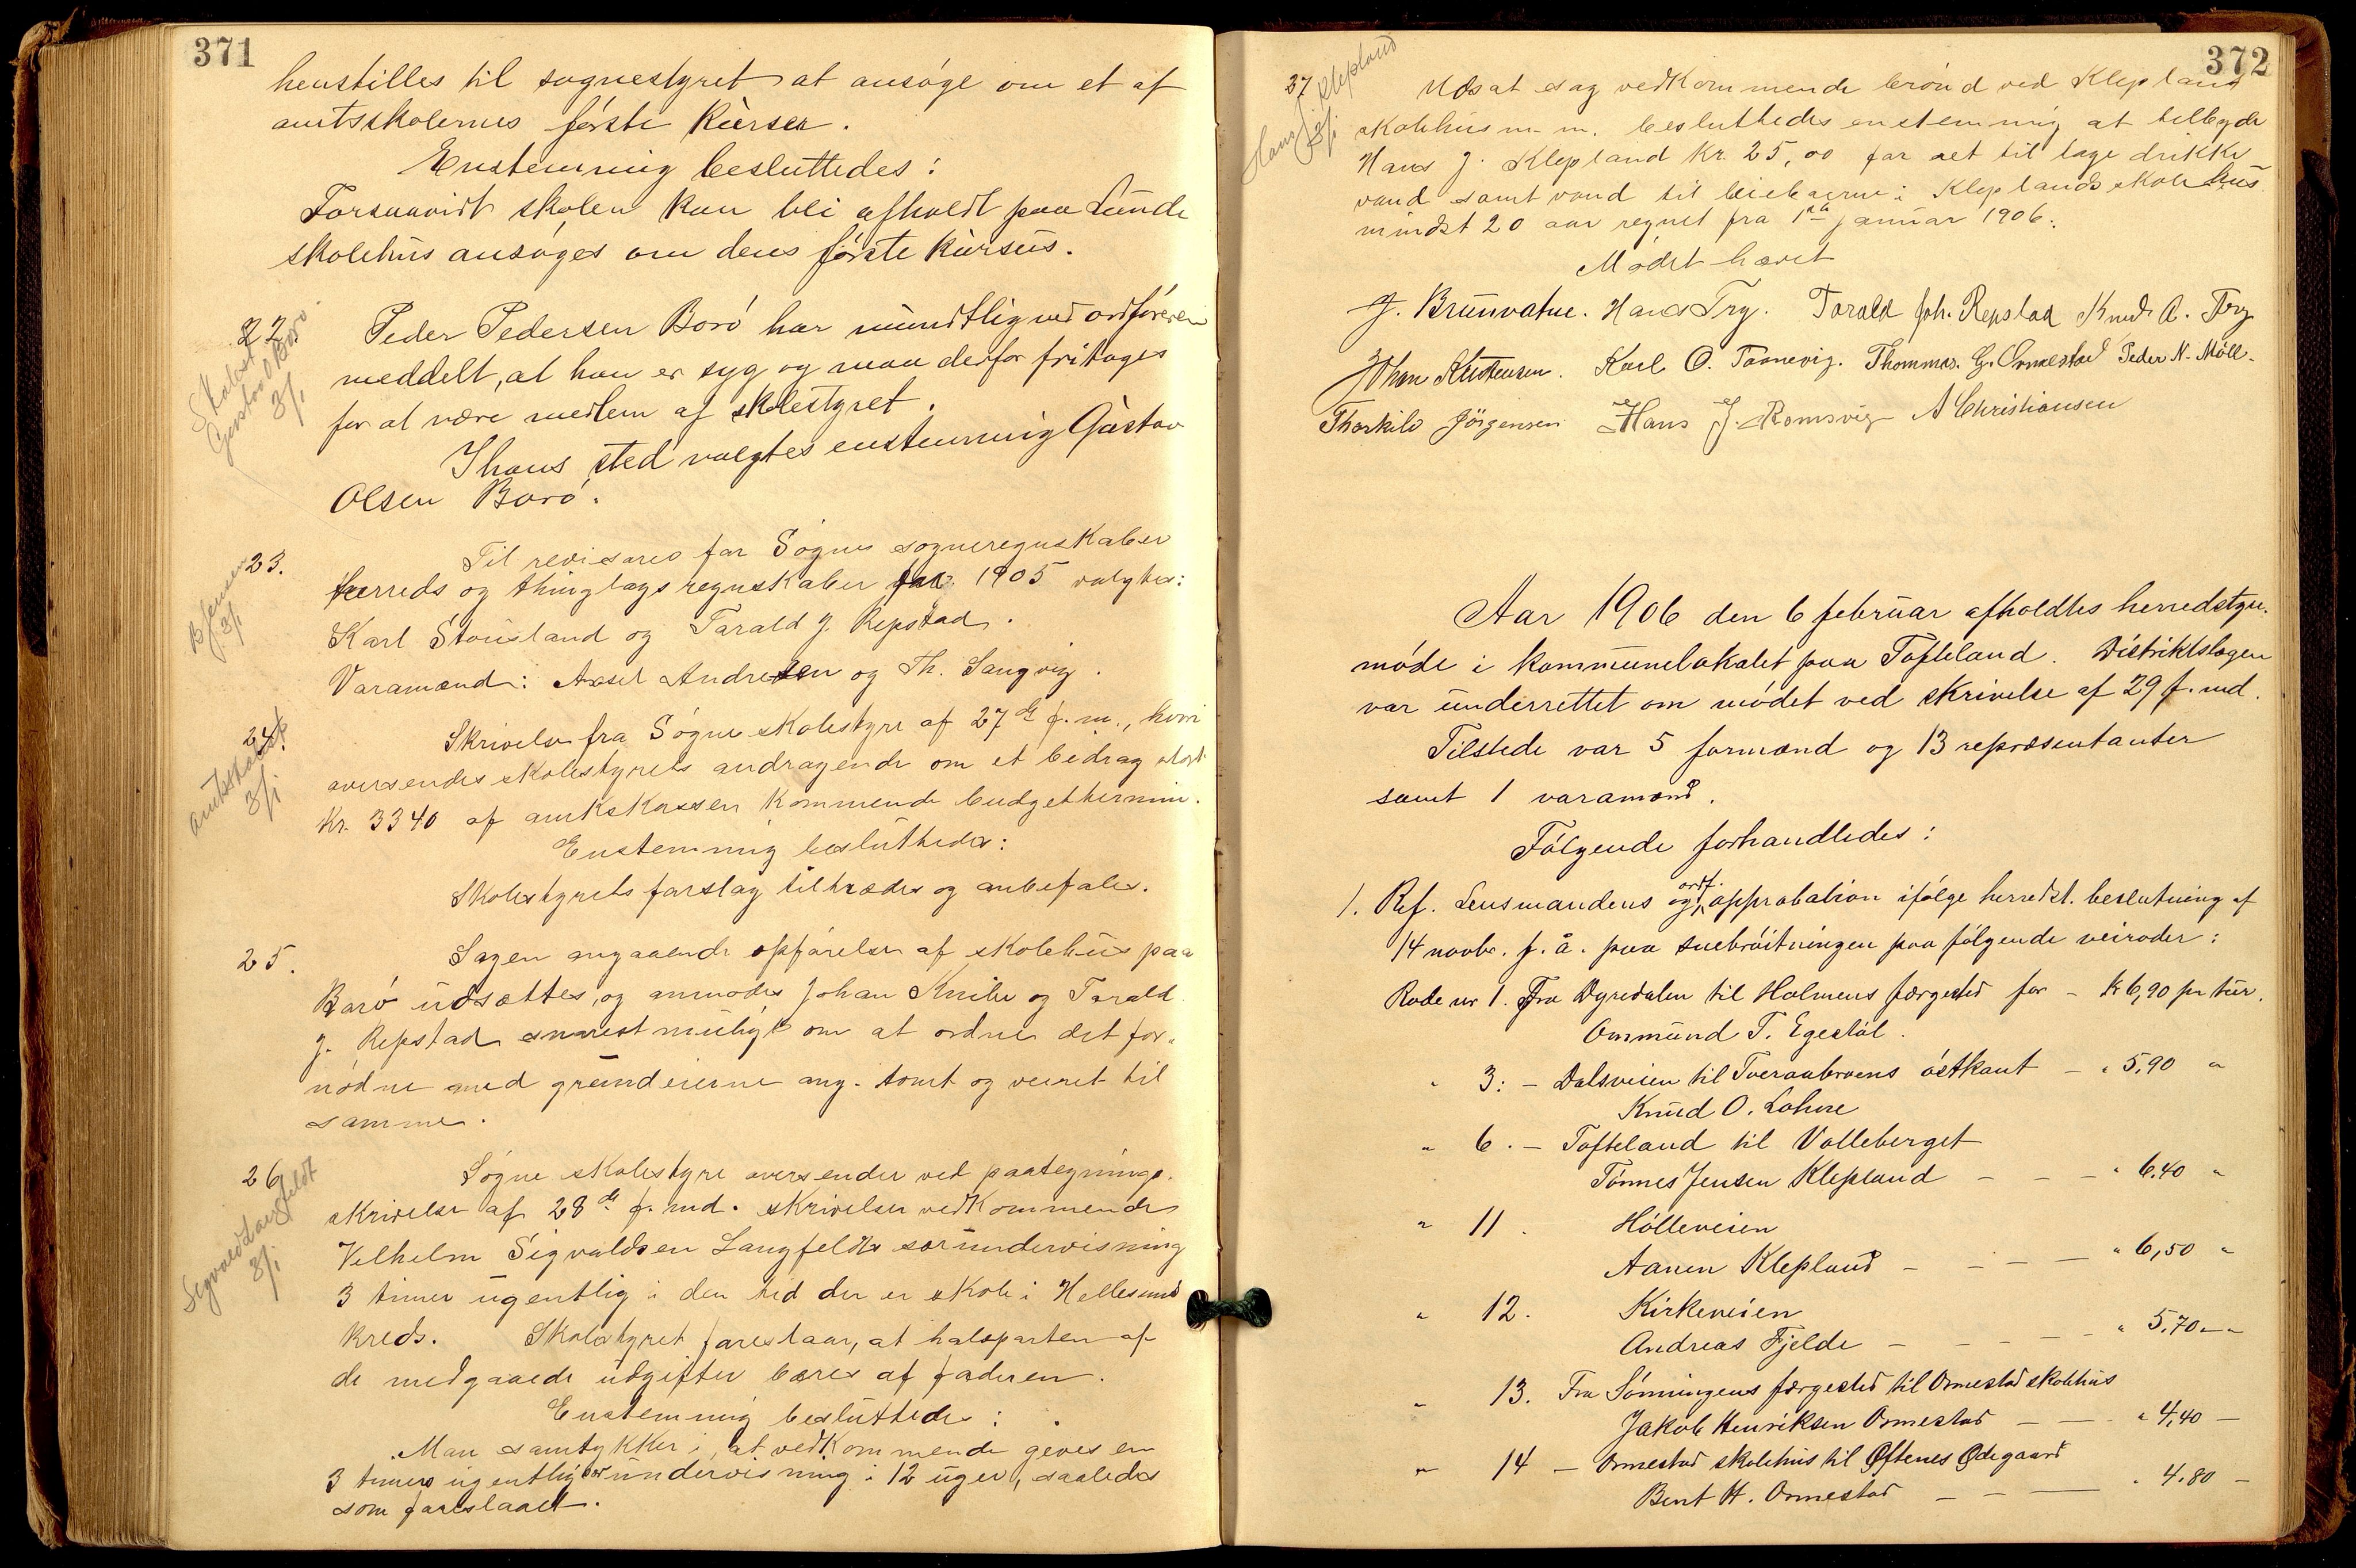 371
henstilles til sognestyret at ansøge om et af
amtsskolernes første kurser.
Enstemmig besluttedes:
Forsaavidt skolen kan bli afholdt paa Lunde
skolehus ansøges om dens første kursus.
22.
Skolest.
Gustav O Borø
3/1
Peder Pedersen Borø har mundtlig ved ordføreren
meddelt, at han er syg og maa derfor fritages
for at være medlem af skolestyret.
I hans sted valgtes enstemmig Gustav
Olsen Borø.
23.
3/1
Til revisorer for Søgne sogneregnskaber
herreds og thinglags regnskaber for 1905 valgtes:
Karl Stousland og Tarald J. Repstad.
Varamænd: Axsel Andresen og Th. Langvig.
24.
amtsskolest
3/1
Skrivelse fra Søgne skolestyre af 27de f. m., hvori
oversendes skolestyrets andragende om et bidrag stort
Kr. 3340 af amtskassen kommende budgettermin.
Enstemmig besluttedes:
Skolestyrets forslag tiltrædes og anbefales.
25.
Sagen angaaende opførelse af skolehus paa
Borø udsættes, og anmodes Johan Knibe og Tarald
J. Repstad snarest muligt om at ordne det for-
nødne med grundeierne ang. tomt og veiret til
samme.
26
Sigvald Langfeldt
3/1
Søgne skolestyre oversender ved paategnings-
skrivelse af 28de f. md. skrivelser vedkommende
Vilhelm Sigvaldsen Langfeldts særundervisning
3 timer ugentlig i den tid der er skole i Hellesund
kreds. Skolestyret foreslaar, at halvparten af
de medgaaede udgifter bæres af faderen.
Enstemmig besluttedes:
Man samtykker i, at vedkommende gives en
3 timers ugentlig særundervisning i 12 uger, saaledes
som foreslaaet.
372
27
Hans J. Klepland
3/1
Udsat sag vedkommende brønd ved Klepland
skolehus m. m. besluttedes enstemmig at tilbyde
Hans J. Klepland Kr. 25,00 for ret til tage drikke
vand samt vand til leieboerne i Kleplands skolehus
mindst 20 aar regnet fra 1ste januar 1906.
Mødet hævet
J. Brunvatne. Hans Try. Tarald Joh. Repstad Knud A. Try
Johan Kristensen. Karl O. Taanevig. Thommas. G. Ormestad Peder N. Møll.
Thorkild Jörgensen Hans J. Romsvig A Christiansen
Aar 1906 den 6 februar afholdtes herredstyre-
møde i kommunelokalet paa Tofteland. Distriktslægen
var underrettet om mødet ved skrivelse af 29 f. md.
Tilstede var 5 formænd og 13 repræsentanter
samt 1 varamænd.
Følgende forhandledes:
1. Ref. Lensmandens og ordf. approbation ifølge herredst. beslutning af
14 novbr. f. å. paa snebrøitningen paa følgende veiroder:
Rode nr 1. Fra Dyredalen til Holmens færgested for - Kr 6,90 pr tur.
Ommund T. Egestøl.
" 3: - Dalsveien til Tveraabroens østkant - " 5,90 "
Knud O. Lohne
" 6. - Tofteland til Volleberget
Tønnes Jensen Klepland - - - " 6.40 "
" 11. Hølleveien
Aanen Klepland - - - - " 6,50 "
" 12. Kirkeveien
Andreas Fjelde - - - - " 5,70 - "
" 13. Fra Lønningens færgested til Ormestad skolehus
Jakob Henriksen Ormestad - - - " 4,40 -
" 14 - Ormestad skolehus til Øftenes Ødegaard
Bent H. Ormestad - - - " 4.80 -